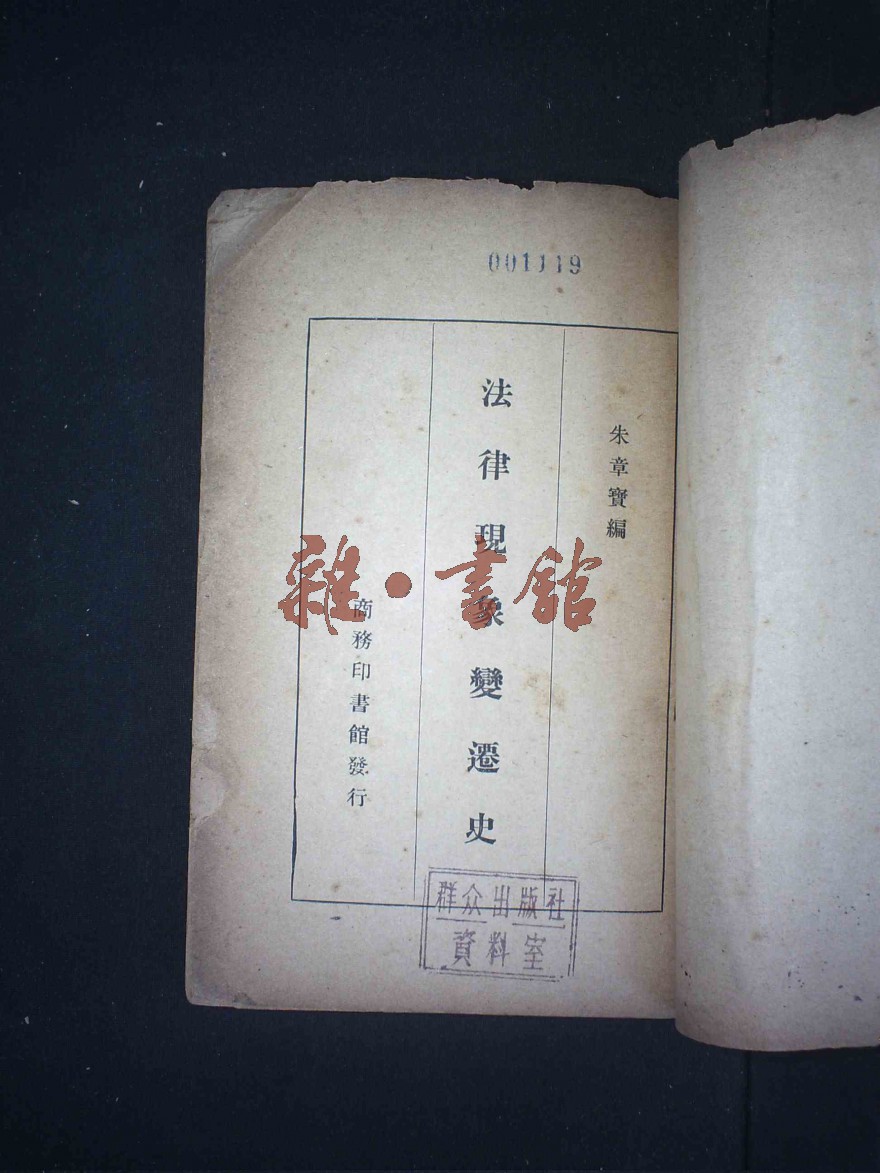 001119
朱章寶編
法律現象變遷史
商務印書館發行
雜·書館
群众出版社
資料室